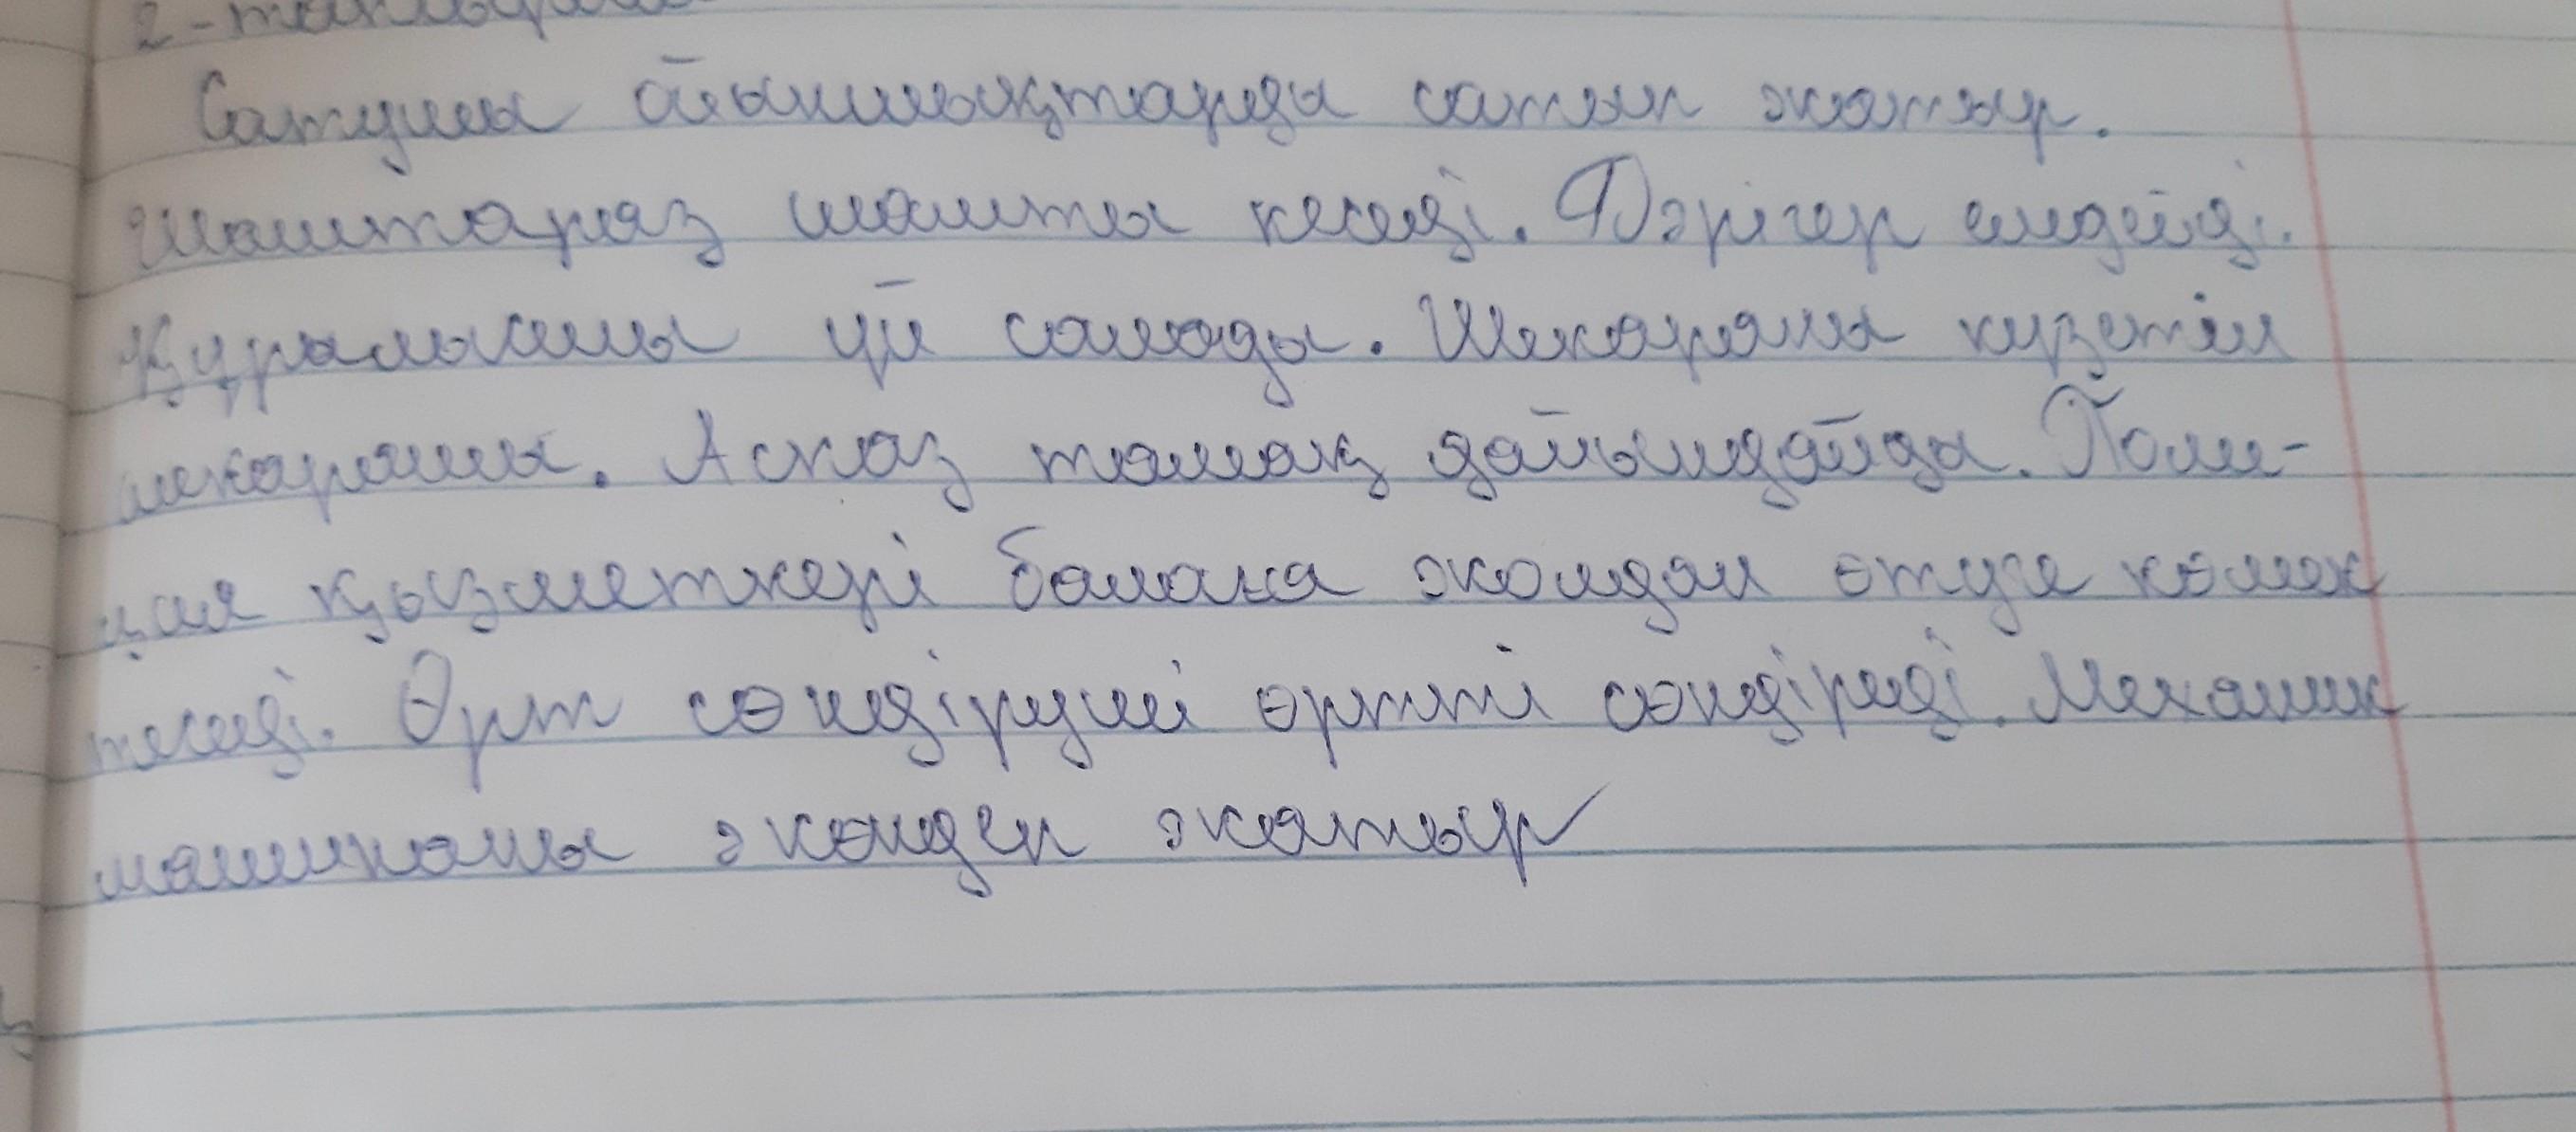 2-тапсырма
Сатушы ойыншықтарды сатып жатыр.
Шаштараз шашты кеседі. Дәрігер емдейді.
Құрылысшы үй салады. Шекараны күзетіп
шекарашы. Асказ тамақ дайындайды. Поли-
ция қызметкері балаға жолдан өтуге көмек
теседі. Өрт сөндіруші өртті сөндіреді. Механик
машинаны жөндеп жатыр